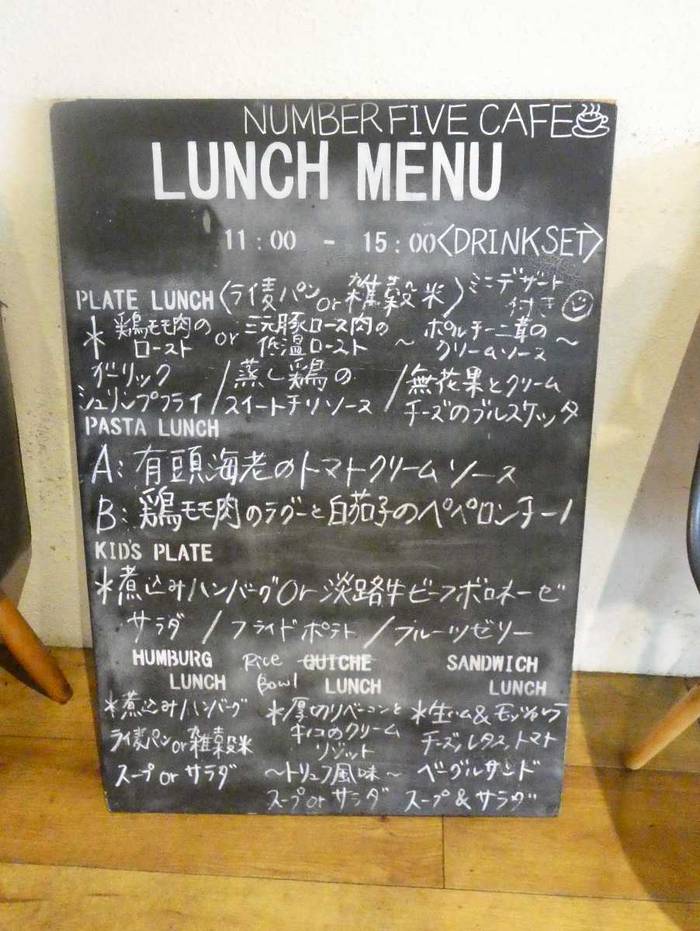 NUMBER FIVE CAFE
LUNCH MENU
11:00 - 15:00 <DRINK SET>
PLATE LUNCH 〈ライ麦パン or 雑穀米〉 ミニデザート付き
* 鶏モモ肉のロースト or 三元豚ロース肉の低温ロースト ~ポルチーニ茸のクリームソース~
ガーリックシュリンプフライ / 蒸し鶏のスイートチリソース / 無花果とクリームチーズのブルスケッタ
PASTA LUNCH
A: 有頭海老のトマトクリームソース
B: 鶏モモ肉のラグーと白茄子のペペロンチーノ
KID'S PLATE
* 煮込みハンバーグ Or 淡路牛ビーフボロネーゼ
サラダ / フライドポテト / フルーツゼリー
HUMBURG LUNCH
* 煮込みハンバーグ
ライ麦パン or 雑穀米
スープ or サラダ
Rice Bowl QUICHE LUNCH
* 厚切りベーコンと
キノコのクリーム
リゾット
~トリュフ風味~
スープ or サラダ
SANDWICH LUNCH
* 生ハム & モッツァレラ
チーズ,レタス,トマト
ベーグルサンド
スープ & サラダ